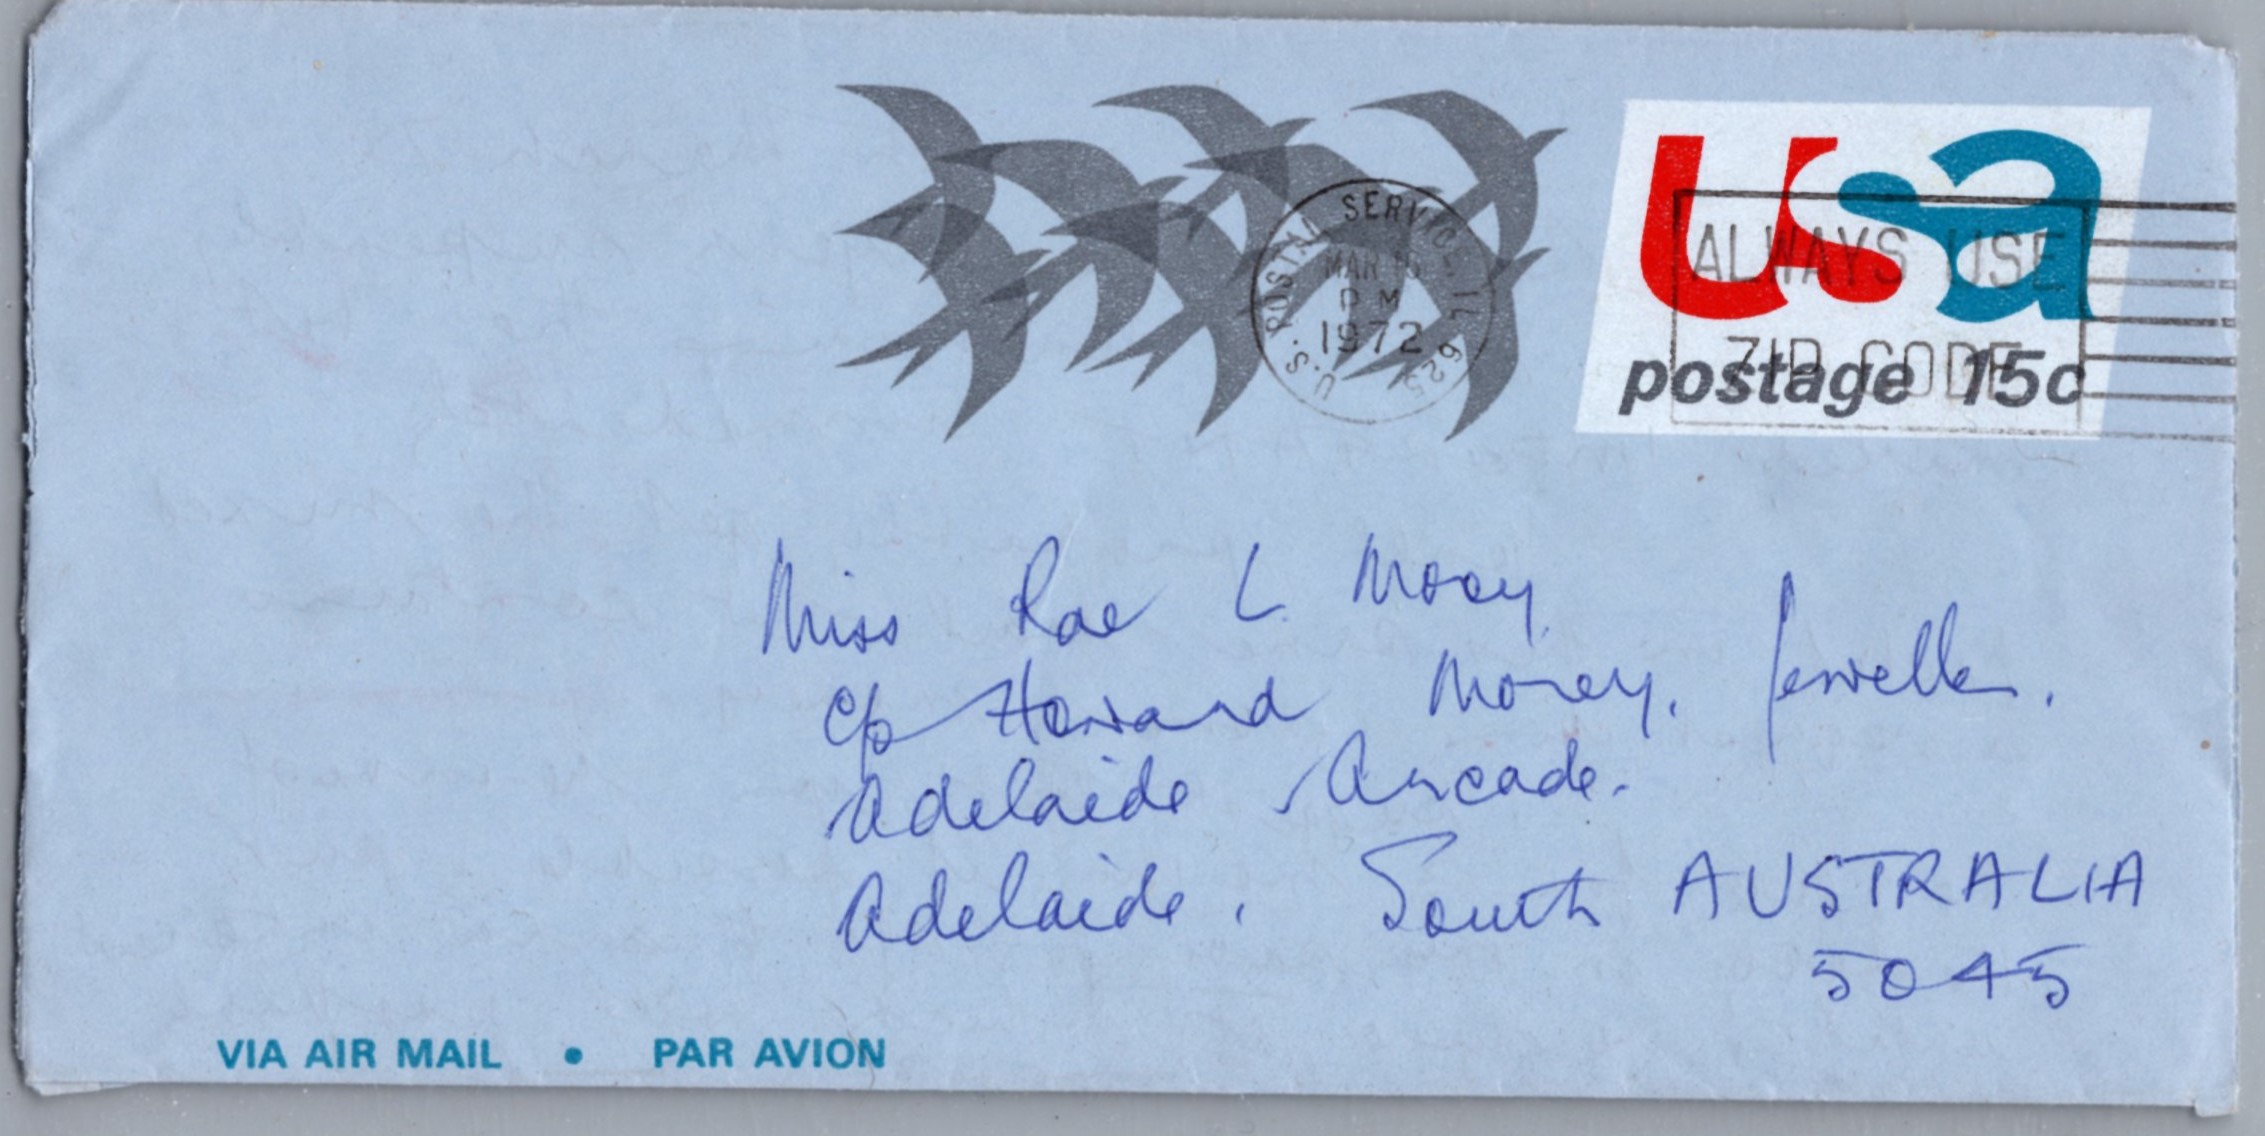 usa
postage 15c
U.S. POSTAL SERVICE IL 625
MAR 16
PM
1972
ALWAYS USE
ZIP CODE
Miss Rae L Morey
c/o Howard Morey, Jeweller.
Adelaide Arcade.
Adelaide, South AUSTRALIA
5045
VIA AIR MAIL • PAR AVION